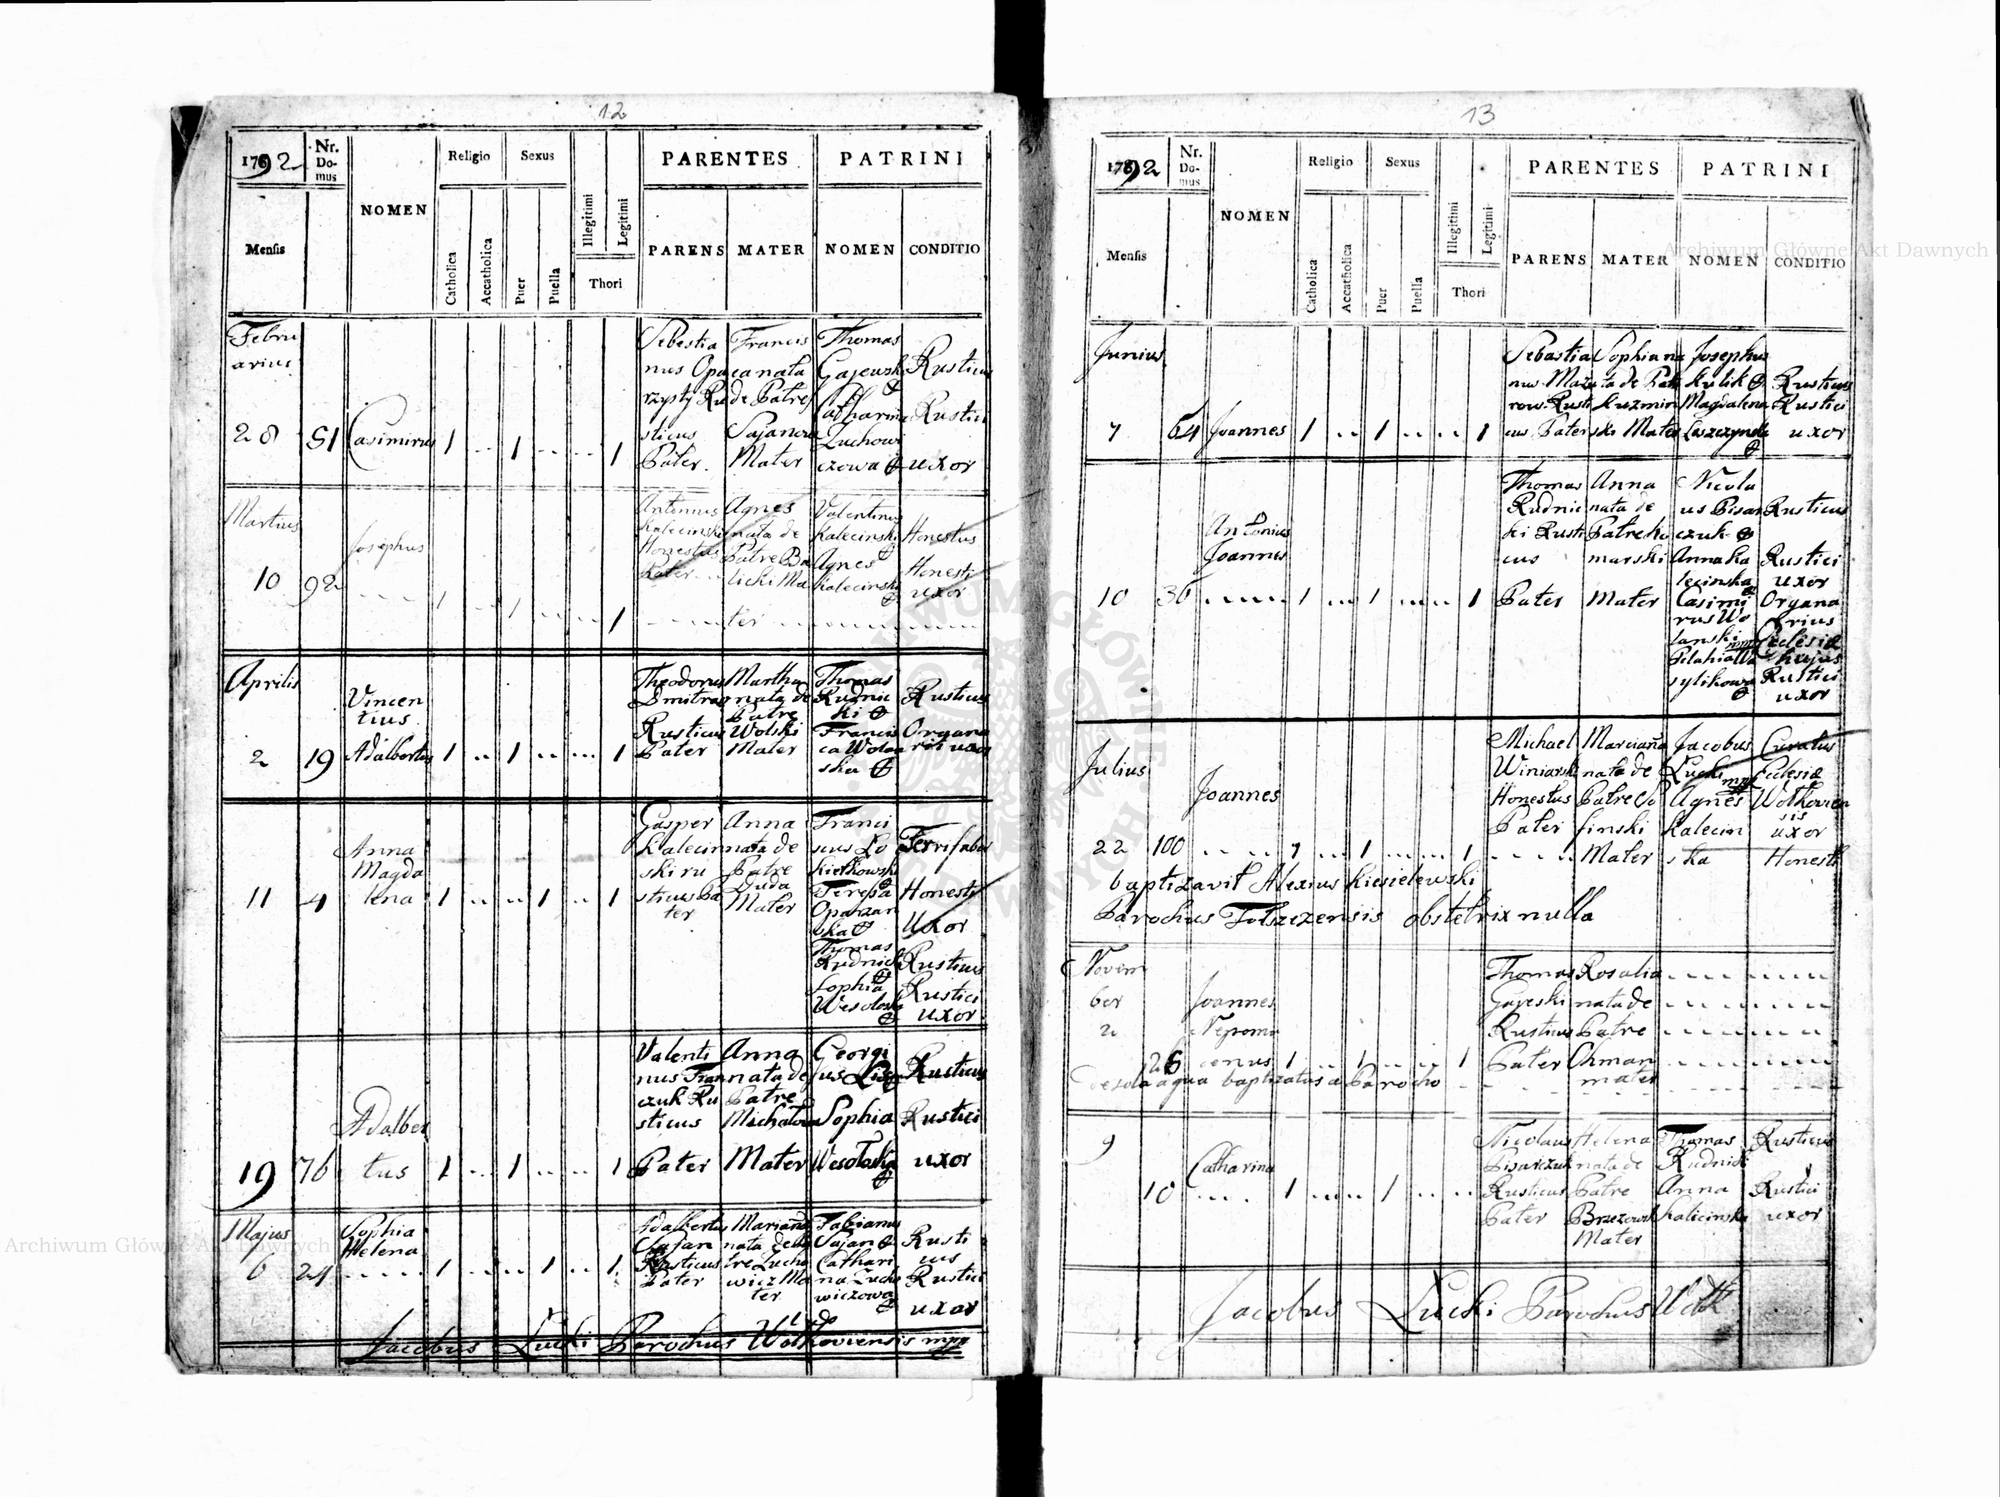 12
1792
Nr. Domus
NOMEN
Religio
Sexus
PARENTES
PATRINI
Mensis
Catholica
Accatholica
Puer
Puella
Illegitimi
Legitimi
Thori
PARENS
MATER
NOMEN
CONDITIO
Febru
arius
28 51 Casimirus 1 1 1
Sebestia
nus Opa
rzysty Ru
sticus
Pater
Francis
ca nata
de Patre
Sajanow
Mater
Thomas
Gajewsk
Catharina
Zuchow
czowa
Rusticus
Rustici
uxor
Martius
10 92 Josephus 1 1 1
Antonius
Kalecinski
Honestus
Pater
Agnes
nata de
Patre Ba
licki Ma
ter
Valentinus
Kalecinski
Agnes
Kalecinska
Honestus
Honesti
uxor
Aprilis
2 19
Vincen
tius
Adalbertus 1 1 1
Theodorus
Dmitrao
Rusticus
Pater
Martha
nata de
Patre
Wolski
Mater
Thomas
Rudnic
ki
Francis
ca Wolan
ska
Rusticus
Organa
rii uxor
11 4
Anna
Magda
lena 1 1 1
Gasper
Kalecin
ski ru
sticus Pa
ter
Anna
nata de
Patre
Duda
Mater
Franci
scus Lo
kietkowski
Teresa
Oparzan
ska
Thomas
Rudnicki
Sophia
Wesolosk
Ferrifaber
Honesti
Uxor
Rusticus
Rustici
uxor
19 76
Adalber
tus 1 1 1
Valenti
nus Fran
czuk Ru
sticus
Pater
Anna
nata de
Patre
Michalow
Mater
Georgi
us Lis
Sophia
Wesolaska
Rusticus
Rustici
uxor
Majus
6 24
Sophia
Helena 1 1 1
Adalbertus
Sajan
Rusticus
Pater
Marianna
nata de Pa
tre Zucho
wicz Ma
ter
Fabianus
Sajan
Cathari
na Zucho
wiczowa
Rusti
cus
Rustici
uxor
Jacobus Lucki Parochus Wolkoviensis mpp
13
1792
Nr. Domus
NOMEN
Religio
Sexus
PARENTES
PATRINI
Mensis
Catholica
Accatholica
Puer
Puella
Illegitimi
Legitimi
Thori
PARENS
MATER
NOMEN
CONDITIO
Junius
7 64 Joannes 1 1 1
Sebastia
nus Mazu
row Rusti
cus Pater
Sophia na
ta de Patre
Kuzmin
ski Mater
Josephus
Kulik
Magdalena
Leszczynska
Rusticus
Rustici
uxor
10 36
Antonius
Joannes 1 1 1
Thomas
Rudnic
ki Rusti
cus
Pater
Anna
nata de
Patre Ko
marski
Mater
Nicola
us Pisar
czuk
Anna Ka
lecinska
Casimi
rus Wo
lanski
Pelahia Wa
sylikowa
Rusticus
Rustici
uxor
Organa
rius
Ecclesiæ
hujus
Rustici
uxor
Julius
22 100 Joannes 1 1 1
Michael
Winiarski
Honestus
Pater
Marcianna
nata de
Patre So
finski
Mater
Jacobus
Lucki mpp
Agnes
Kalecin
ska
Curatus
Eclesiæ
Wolkovien
sis
uxor
Honesti
baptizavit Alexius Kiesielewski
Parochus Tolszczensis obstetrix nulla
Novem
ber
2 26
Joannes
Nepomu
cenus 1 1 1
Thomas
Gajeski
Rusticus
Pater
Rosalia
nata de
Patre
Ohman
mater
de sola aqua baptizatus a Parocho
9 10 Catharina 1 1
Nicolaus
Pisarczuk
Rusticus
Pater
Helena
nata de
Patre
Brzezowsk
Mater
Thomas
Rudnicki
Anna
Kalicinska
Rusticus
Rustici
uxor
Jacobus Lucki Parochus Wolk
Archiwum Główne Akt Dawnych
Archiwum Główne Akt Dawnych